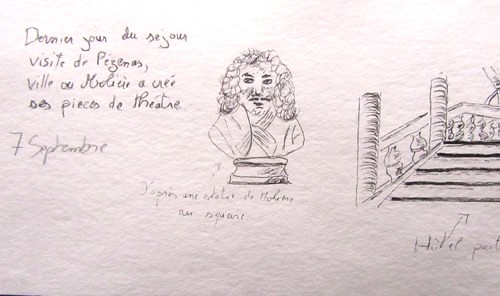 Dernier jour du sejour
visite de Pézenas,
ville où Molière a créé
ses pieces de théâtre.
7 Septembre
D'après une statue de Molière
au square.
Hôtel part